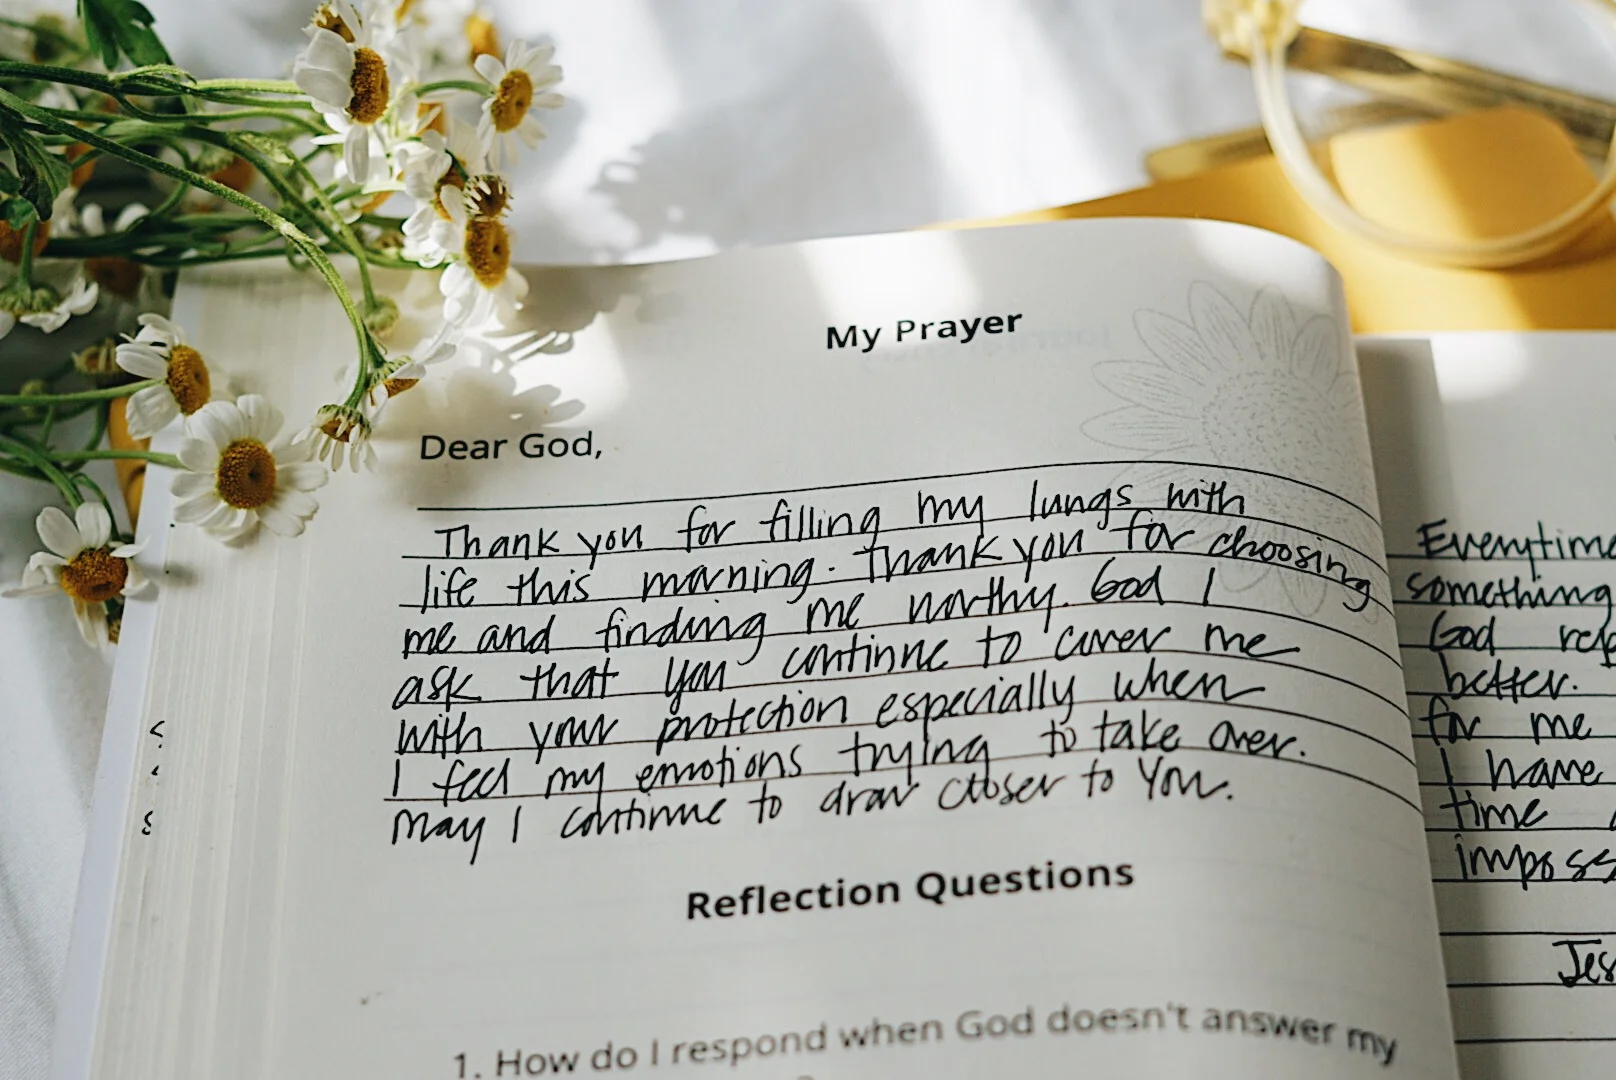 My Prayer
Dear God,
Thank you for filling my lungs with
life this morning. Thank you for choosing
me and finding me worthy. God I
ask that you continue to cover me
with your protection especially when
I feel my emotions trying to take over.
May I continue to draw closer to You.
Reflection Questions
1. How do I respond when God doesn't answer my
Everytime
something
God
better.
for me
I have
time